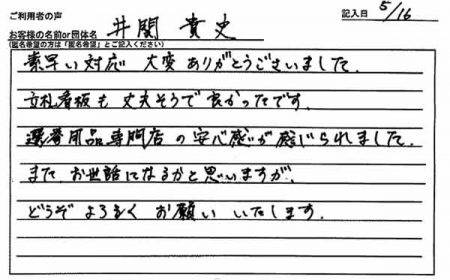 ご利用者の声
記入日 5/16
お客様の名前or団体名 井関 貴史
(匿名希望の方は「匿名希望」とご記入ください)
素早い対応 大変ありがとうございました。
立札看板も丈夫そうで良かったです。
選挙用品専門店の安心感が感じられました。
また お世話になるかと思いますが、
どうぞよろしく お願いいたします。